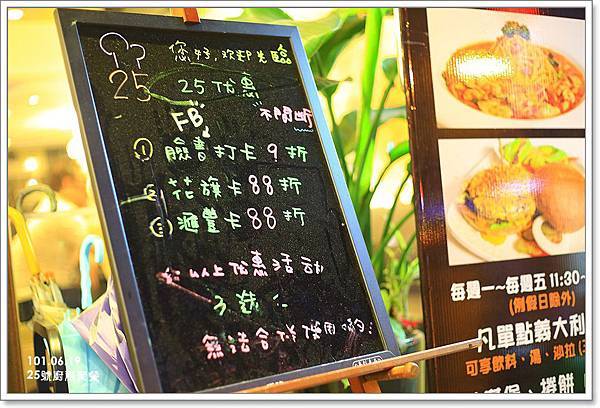 您好,欢迎光臨
25
25优惠
不間断
FB
① 臉書打卡9折
② 花旗卡88折
③ 滙豐卡88折
以上优惠活动
3選1
無法合併使用喲
每週一~每週五 11:30~
(例假日除外)
凡單點義大利
可享飲料、湯、沙拉
捲餅
101.06.19
25號廚房